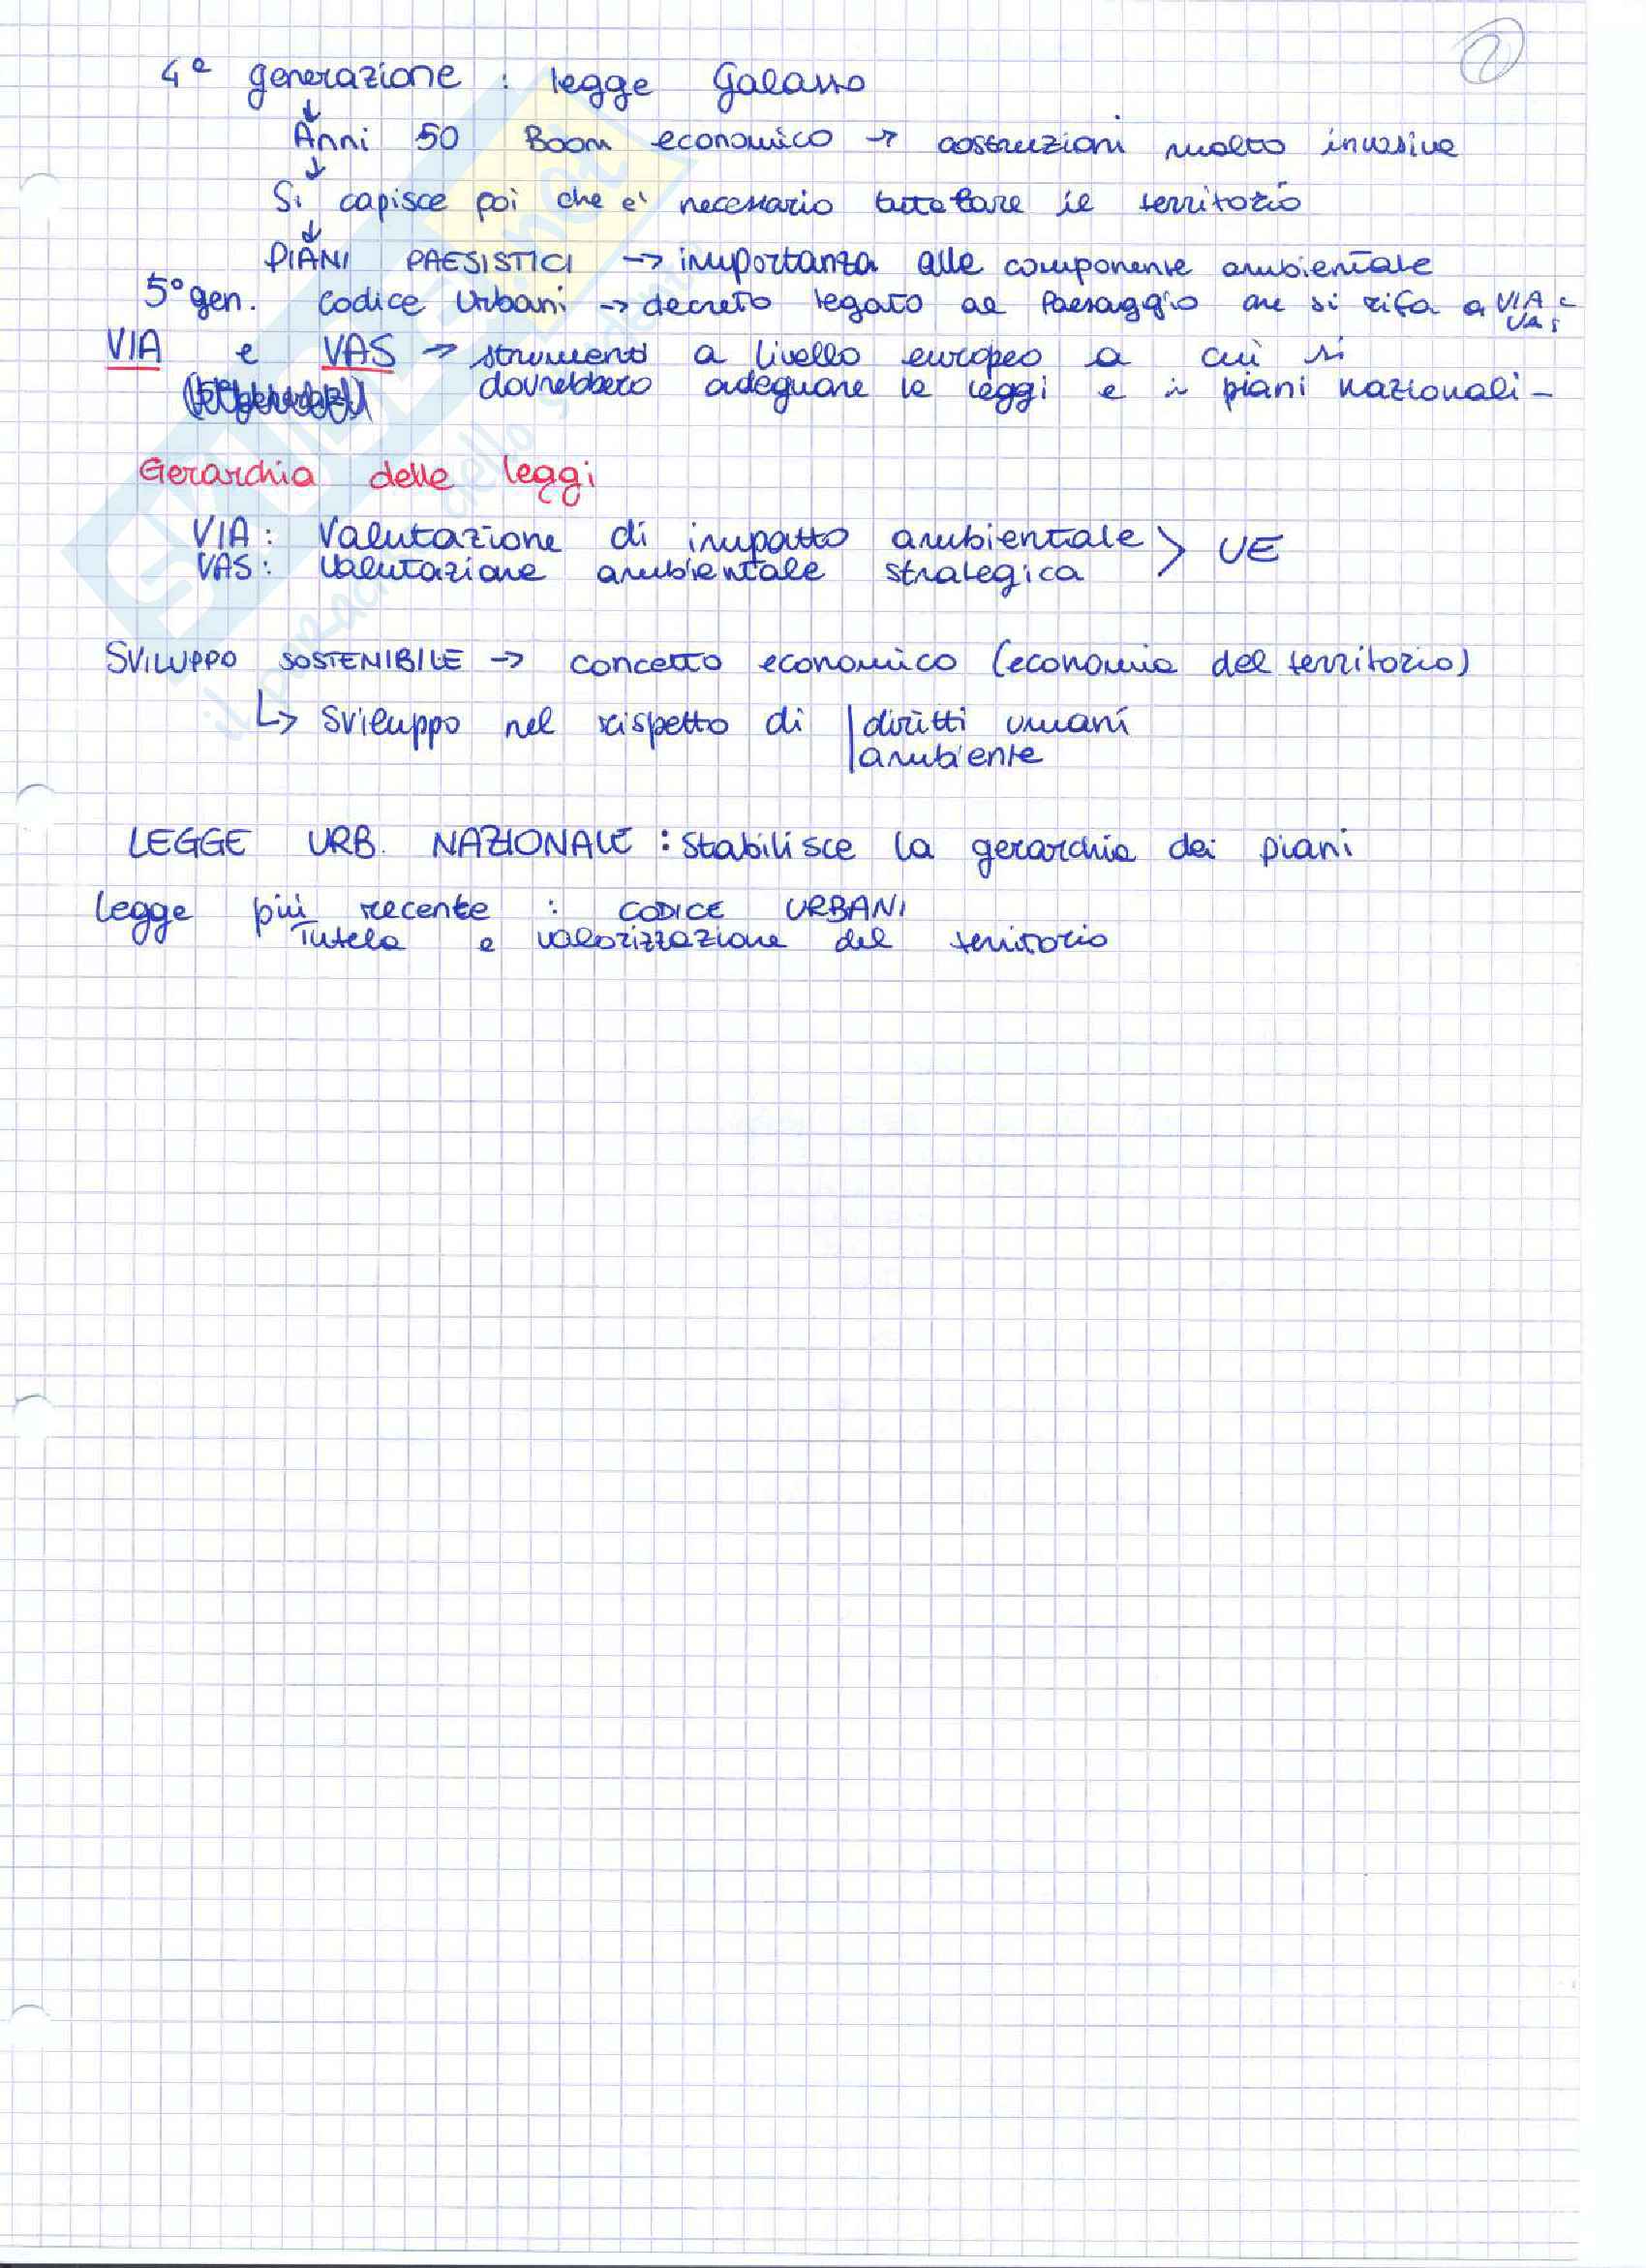 2
4ª generazione : legge Galasso
↓
Anni 50 Boom economico → costruzioni molto invasive
↓
Si capisce poi che e' necessario tutelare il territorio
↓
PIANI PAESISTICI → importanza alle componente ambientale
5° gen. Codice Urbani → decreto legato al Paesaggio che si rifa a VIA e VAS
VIA e VAS → strumenti a livello europeo a cui si
dovrebbero adeguare le leggi e i piani nazionali -
Gerarchia delle leggi
VIA: Valutazione di impatto ambientale > UE
VAS: Valutazione ambientale strategica
SVILUPPO SOSTENIBILE → concetto economico (economia del territorio)
↳ sviluppo nel rispetto di | diritti umani
| ambiente
LEGGE URB. NAZIONALE : Stabilisce la gerarchia dei piani
legge più recente : CODICE URBANI
Tutela e valorizzazione del territorio